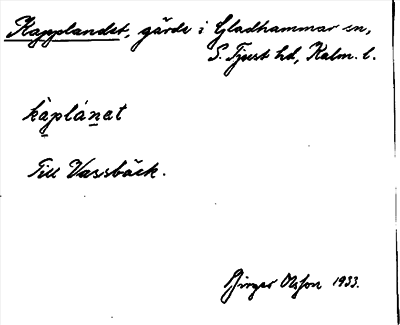 Kapplandet, gärde i Gladhammar sn,
S. Tjust hd, Kalm. l.
kàplánat
Till Vassbäck.
Birger Olsson 1933.